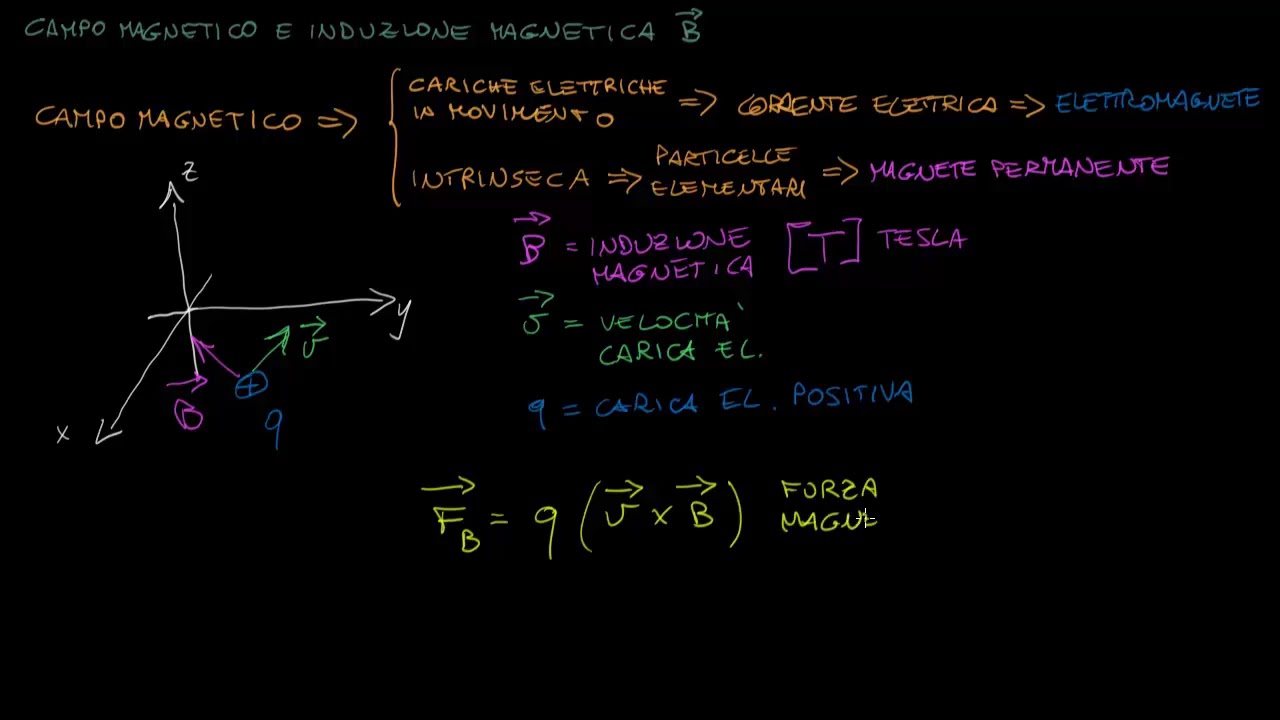 CAMPO MAGNETICO E INDUZIONE MAGNETICA B
CAMPO MAGNETICO =>
CARICHE ELETTRICHE
IN MOVIMENTO
=> CORRENTE ELETTRICA => ELETTROMAGNETE
INTRINSECA =>
PARTICELLE
ELEMENTARI
=> MAGNETE PERMANENTE
z
y
x
B
v
q
B = INDUZIONE
MAGNETICA
[T] TESLA
v = VELOCITÀ
CARICA EL.
q = CARICA EL. POSITIVA
F_B = q (v × B)
FORZA
MAGNE